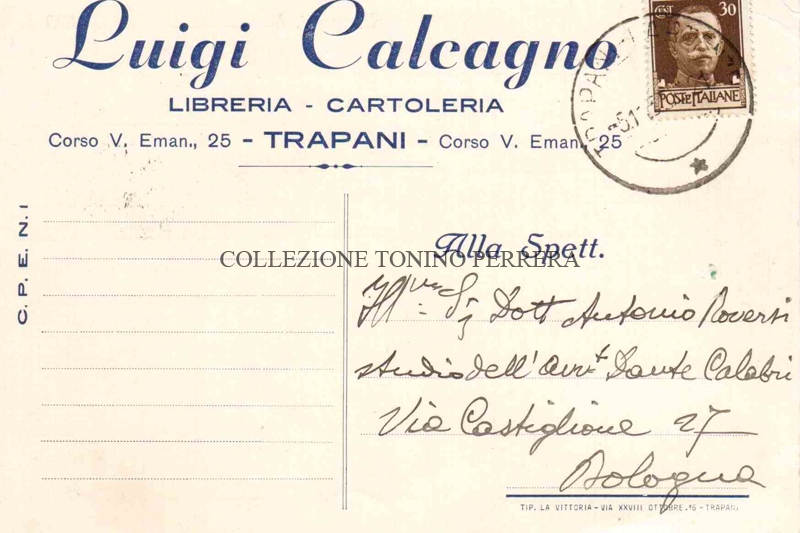 Luigi Calcagno
LIBRERIA - CARTOLERIA
Corso V. Eman., 25 - TRAPANI - Corso V. Eman., 25
Cent. 30
POSTE ITALIANE
TRAPANI
C. P. E. N. 1
Alla Spett.
COLLEZIONE TONINO PERRERA
Ill.mo Sig Dott Antonio Roversi
studio dell'avv.t Dante Calabri
Via Castiglione 27
Bologna
TIP. LA VITTORIA - VIA XXVIII OTTOBRE, 16 - TRAPANI